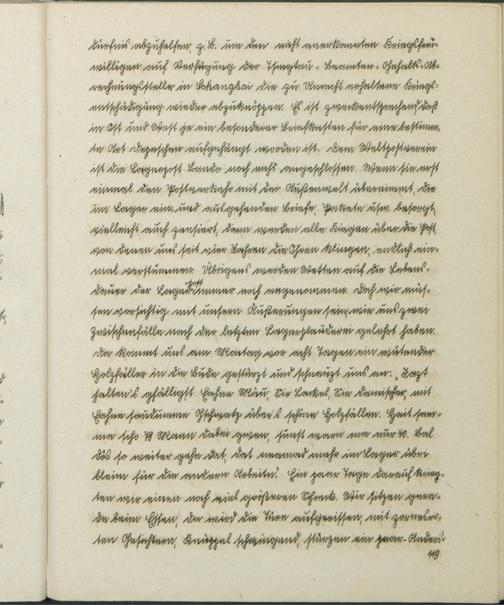 dürfnis abzuhelfen, z.B. um den nicht anerkannten Kriegsfrei-
willigen auf Verfügung der Tsingtau-Beamten-Gehalts-Ab-
rechnungsstelle in Schanghai die zu Unrecht erhaltene Kriegs-
entschädigung wieder abzuknöpfen. Es ist zweckentsprechend, daß
in Ost und West je ein besonderer Briefkasten für eine bestimm-
te Art Depeschen aufgehängt worden ist. Dem Weltpostverein
ist die Lagerpost Bando noch nicht angeschlossen. Wenn sie erst
einmal den Postverkehr mit der Außenwelt übernimmt, die
im Lager ein- und ausgehenden Briefe, Pakete usw. besorgt,
vielleicht auch zensiert, dann werden alle Klagen über die Post,
von denen uns seit vier Jahren die Ohren klingen, endlich ein-
mal verstummen. Übrigens werden Wetten auf die Lebens-
dauer der Lagerpost immer noch angenommen. Doch wir müs-
sen vorsichtig mit unsern Äußerungen sein, wie uns zwei
Zwischenfälle nach der letzten Lagerplauderei gelehrt haben.
Da kommt uns am Montag vor acht Tagen ein wütender
Holzfäller in die Bude gestürzt und schnauzt uns an: "Jazt
halten's gfälligst Eahna Mäu, Sie Lackel, Sie damischer, mit
Eahna saudumma Gschwatz über's schöne Holzfällen. Heit san-
ma scho 78 Mann dabei gwen, sunst warn ma nur 40. Bal
dös so weiter geht dat, dat neamad mehr im Lager übri
bleim für die andern Arbeiten." Ein paar Tage darauf krieg-
ten wir einen noch viel größeren Schreck. Wir sitzen gera-
de beim Essen, da wird die Türe aufgerissen, mit zornesro-
ten Gesichtern, Knüppel schwingend, stürzen ein paar Anders-
119